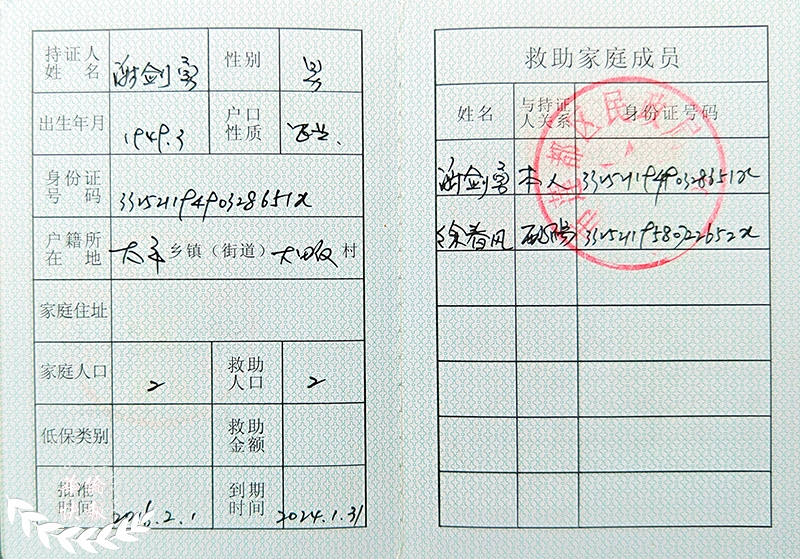 持证人姓名 谢剑 性别 男
出生年月 1949.3 户口性质 农业
身份证号码 33252119490328651x
户籍所在地 太平 乡镇（街道） 大畈 村
家庭住址
家庭人口 2 救助人口 2
低保类别 救助金额
批准时间 .2.1 到期时间 2024.1.31
救助家庭成员
姓名 与持证人关系 身份证号码
谢剑 本人 33252119490328651x
徐春凤 配偶 33252119580722652x
市莲都区民政局